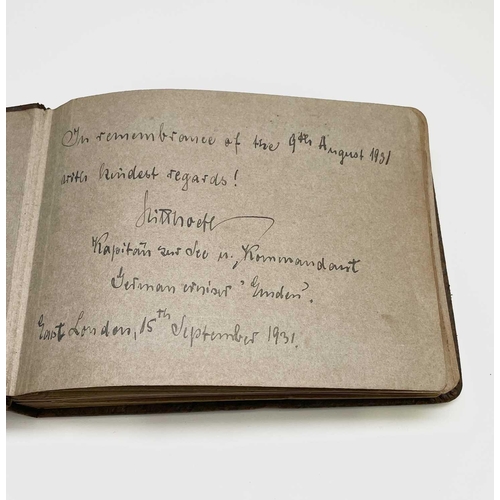 In remembrance of the 9th August 1931
with kindest regards!
Witthoeft
Kapitän zur See u. Kommandant
German cruiser "Emden".
East London, 15th September 1931.